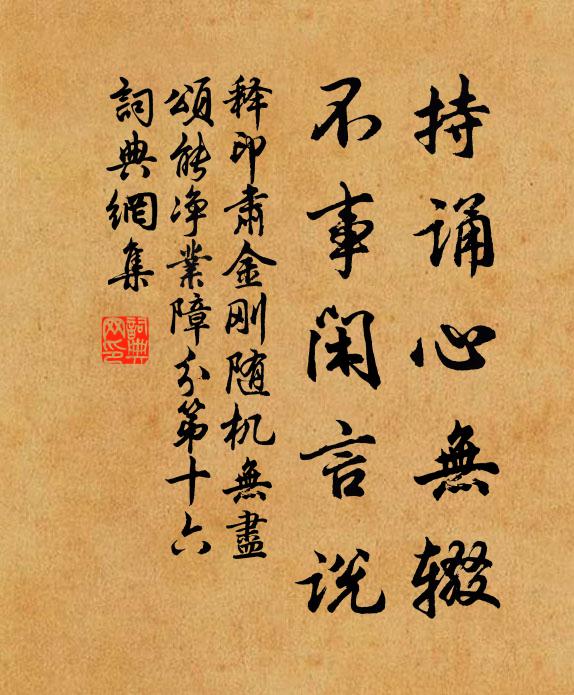 持诵心無辍
不事闲言说
释印肃金刚随机無盡
颂能净業障分第十六
詞典網集
詞典網印